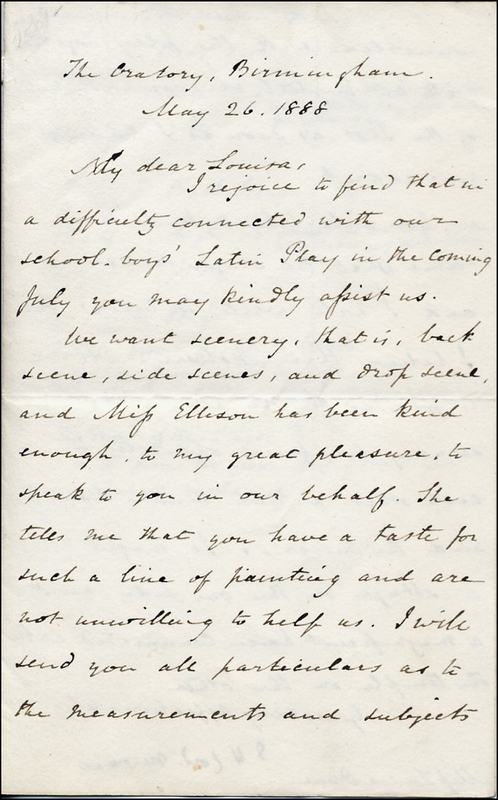 The Oratory, Birmingham.
May 26. 1888
My dear Louisa,
I rejoice to find that in
a difficulty connected with our
school-boys' Latin Play in the coming
July you may kindly assist us.
We want scenery, that is, back
scene, side scenes, and drop scene,
and Miss Ellison has been kind
enough, to my great pleasure, to
speak to you in our behalf. She
tells me that you have a taste for
such a line of painting and are
not unwilling to help us. I will
send you all particulars as to
the measurements and subjects